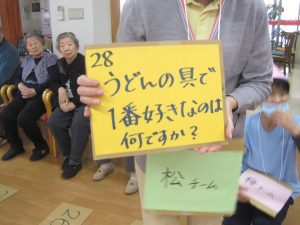 28
うどんの具で
1番好きなのは
何ですか?
松チーム
梅チーム
26